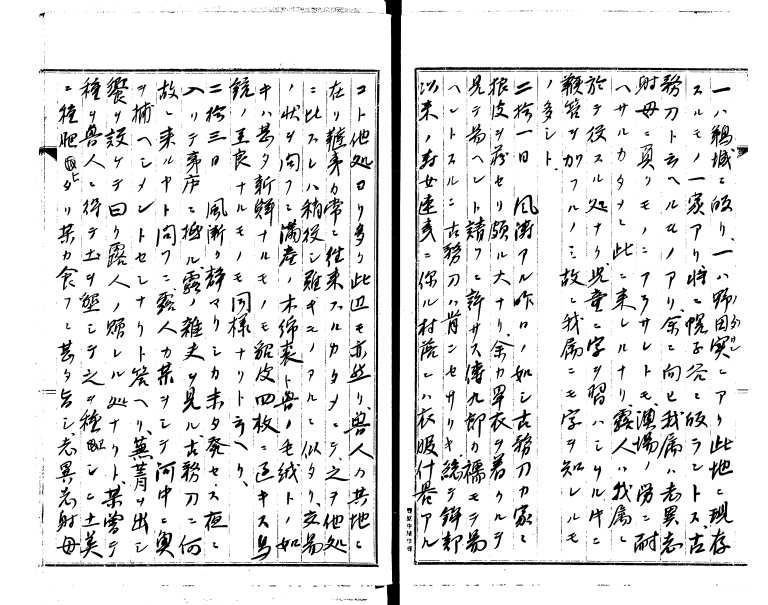 一ハ鵜城ニ帰リ、一ハ野田寒ニアリ此地ニ現存
スルモノ一家アリ将ニ幌子谷ニ帰ラントス、古
務刀ト云ヘルモノアリ余ニ向ヒ我属ハ老異志
射母ニ異リモノニアラサレトモ、漁場ノ労ニ耐
ヘサルカタメニ此ニ来レルナリ、露人ハ我属ニ
於テ役スル処ナク児童ニ字ヲ習ハシムル中ニ
鞭笞ヲ加フルノミ故ニ我属ニモ字ヲ知ルモ
ノ多シト、
二拾一日 風濤アル昨日ノ如シ古務刀カ家ニ
狼皮ヲ蔵セリ頗ル大ナリ、余カ単衣ヲ着クルヲ
見テ易ヘント請フモ許サス傳九郎カ襦モテ易
ヘントスルニ古務刀ハ肯ンセサリキ、総テ鉾部
以来ノ村女連ニ係ル村落ニハ衣服什器アル
コト他処ヨリ多ク此辺モ亦然リ、獣人カ其地ニ
在リ雑弟カ常ニ往来スルカタメニテ之ヲ他処
ニ比スレハ稍役シ難キモノアルニ似タリ、交易
ノ状ヲ問フニ満産ノ木綿裘ト獣ノ毛絨トノ如
キハ甚タ新鮮ナルモノモ貂皮四枚ニ過キス鳥
銃ノ至良ナルモノモ同様ナリト云ヘリ、
二拾三日 風漸ク静マリシカ未タ発セス夜ニ
入リテ茅店ニ極ル露ノ雑丈ヲ見ル古務刀ニ何
故ニ来ルヤト問フニ露人カ某ヲシテ河中ニ奥
ヲ捕ヘシメントセシナリト答ヘリ、蕪菁ヲ出シ
饗ヲ設ケテ曰ク露人ノ贈レル処ナリト、某嘗テ
種ヲ獣人ニ得テ土ヲ墾シテ之ヲ種シニ土美
ニ種肥タリ某カ食フニ甚タ旨シ、老異志射母